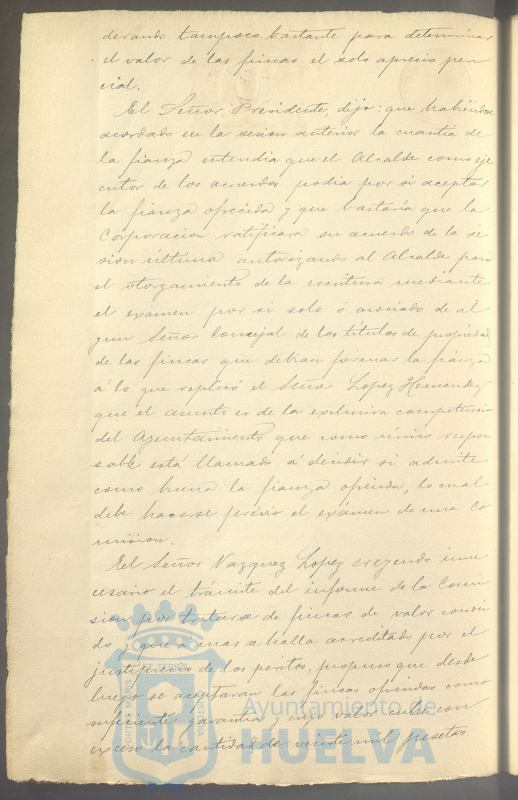 derando tampoco bastante para determinar
el valor de las fincas el solo aprecio peri
cial.
El Señor Presidente, dijo: que habiéndose
acordado en la sesion anterior la cuantia de
la fianza entendia que el Alcalde como eje
cutor de los acuerdos podia por si aceptar
la fianza ofrecida y que bastaria que la
Corporacion ratificara su acuerdo de la se
sion última autorizando al Alcalde para
el otorgamiento de la escritura mediante
el exámen por si solo ó asociado de al
gun Señor Concejal de los titulos de propiedad
de las fincas que debian formar la fianza
á lo que replicó el Señor Lopez Hernandez
que el asunto es de la exclusiva competencia
del Ayuntamiento que como único respon
sable está llamado á decidir si admite
como buena la fianza ofrecida, lo cual
debe hacerse prévio el exámen de una Co
mision.
El Señor Vazquez Lopez creyendo inne
cesario el trámite del informe de la Comi
sion por tratarse de fincas de valor conoci
do y que á mas se halla acreditado por el
justiprecio de los peritos, propuso que desde
luego se aceptaran las fincas ofrecidas como
suficiente garantia y cuyo valor cubre con
exceso la cantidad de veinte mil pesetas
Ayuntamiento de
HUELVA